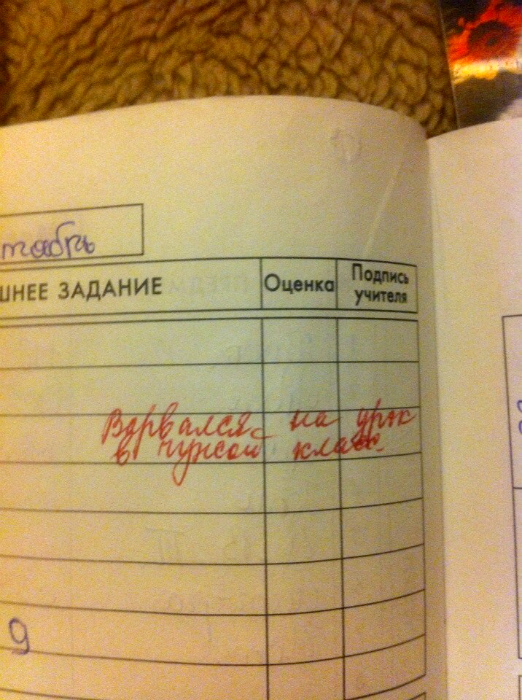 тябрь
ШНЕЕ ЗАДАНИЕ Оценка Подпись учителя
Ворвался на урок
в чужой класс
9